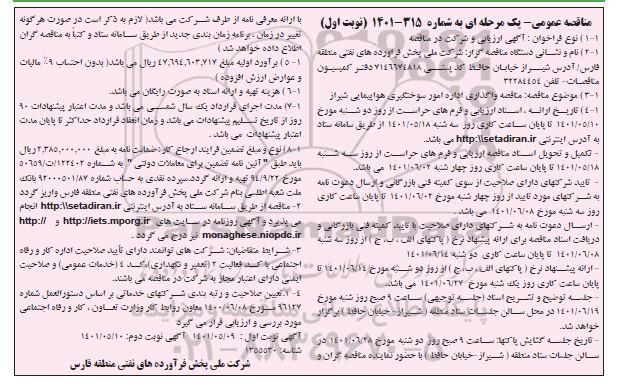 مناقصه عمومی- یک مرحله ای به شماره ۳۱۵-۱۴۰۱ (نوبت اول)
۱-۱) نوع فراخوان : آگهی ارزیابی و شرکت در مناقصه
۱-۲) نام و نشانی دستگاه مناقصه گزار: شرکت ملی پخش فراورده های نفتی منطقه
فارس/ آدرس شیراز خیابان حافظ کد پستی ۷۱۴۶۶۷۴۸۱۸ دفتر کمیسیون
مناقصات- تلفن ۳۲۲۸۴۴۵۴
۱-۳) موضوع مناقصه: مناقصه واگذاری اداره امور سوختگیری هواپیمایی شیراز
۱-۴) تاریخ ارائه ، اسناد ارزیابی و فرم های حراست از روز دو شنبه مورخ
۱۴۰۱/۰۵/۱۰ تا پایان ساعت کاری روز سه شنبه ۱۴۰۱/۰۵/۱۸ از طریق سامانه ستاد
به آدرس اینترنتی http:\\setadiran.ir می باشد.
- تکمیل و تحویل اسناد مناقصه ارزیابی و فرم های حراست از روز سه شنبه
۱۴۰۱/۰۵/۱۸ تا پایان ساعت کاری روز چهار شنبه ۱۴۰۱/۰۶/۰۲ می باشد.
- تایید شرکتهای دارای صلاحیت از سوی کمیته فنی بازرگانی و ارسال دعوت نامه
به شرکتهای مورد تایید از روز چهار شنبه مورخ ۱۴۰۱/۰۶/۰۲ تا پایان ساعت کاری
روز سه شنبه مورخ ۱۴۰۱/۰۶/۰۸ می باشد .
- ارسال دعوت نامه به شرکتهای دارای صلاحیت با تایید کمیته فنی بازرگانی و
دریافت اسناد مناقصه برای ارائه پیشنهاد نرخ ( پاکتهای الف ، ب، ج ) از روز سه شنبه
۱۴۰۱/۰۶/۰۸ تا پایان ساعت کاری دو شنبه ۱۴۰۱/۰۶/۱۴
- ارائه پیشنهاد نرخ ( پاکتهای الف، ب، ج ) از روز دو شنبه مورخ ۱۴۰۱/۰۶/۱۴ تا
پایان ساعت کاری روز یک شنبه مورخ ۱۴۰۱/۰۶/۲۷ می باشد.
- جلسه توضیح و تشریح اسناد (جلسه توجیهی) ساعت ۹ صبح روز شنبه مورخ
۱۴۰۱/۰۶/۱۹ در محل سالن جلسات ستاد منطقه (شیراز-خیابان حافظ) برگزار
خواهد شد.
- تاریخ جلسه گشایش پاکتها: ساعت ۹ صبح روز دو شنبه مورخ ۱۴۰۱/۰۶/۲۸ در
سالن جلسات ستاد منطقه ( شیراز-خیابان حافظ ) با حضور نماینده مناقصه گران و
با ارائه معرفی نامه از طرف شرکت می باشد( لازم به ذکر است در صورت هر گونه
تغییر در زمان، برنامه زمان بندی جدید از طریق سامانه ستاد و کتبا به مناقصه گران
اطلاع داده خواهد شد )
۱-۵) برآورد اولیه مبلغ ۴۷,۶۹۴,۶۰۳,۷۱۷ ریال می باشد( بدون احتساب ۹٪ مالیات
و عوارض ارزش افزوده )
۱-۶) هزینه تهیه و ارائه اسناد به صورت رایگان می باشد.
۱-۷) مدت اجرای قرارداد یک سال شمسی می باشد و مدت اعتبار پیشنهادات ۹۰
روز از تاریخ تسلیم پیشنهادات می باشد و زمان انعقاد قرارداد حداکثر تا پایان مدت
اعتبار پیشنهادات می باشد.
۱-۸) نوع و مبلغ تضمین فرایند ارجاع کار: ضمانت نامه به مبلغ ۲,۳۸۵,۰۰۰,۰۰۰ ریال
باید طبق "آئین نامه تضمین برای معاملات دولتی" به شماره ۱۲۳۴۰۲/ت۵۰۶۵۹
مورخ ۹۴/۹/۲۲ تهیه و ارائه گردد.سپرده نقدی به حساب شماره ۹۲۰۰۰۵۰۱/۸۷ بانک
ملت شعبه اطلسی بنام شرکت ملی پخش فرآورده های نفتی منطقه فارس واریز گردد
۲-مناقصه از طریق سامانه ستاد به آدرس اینترنتی http:\\setadiran.ir انجام
می پذیرد و آگهی روزنامه در سایت های http://iets.mporg.ir و http://
monaghese.niopdc.ir نیز درج می گردد .
۳-شرایط متقاضیان: شرکت های توانمند دارای تأیید صلاحیت اداره کار و رفاه
اجتماعی با کد فعالیت ۲ (تعمیر و نگهداری)،کد ۴ (خدمات عمومی) و صلاحیت
ایمنی دارای اعتبار مجاز به شرکت در مناقصه می باشند.
۴-۱.تعیین صلاحیت و رتبه بندی شرکتهای خدماتی بر اساس دستورالعمل شماره
۹۶۱۲۷ مورخ ۱۴۰۰/۰۶/۰۸ معاون روابط کار وزارت تعاون ، کار و رفاه اجتماعی
مورد بررسی و ارزیابی قرار می گیرد
آگهی نوبت اول : ۱۴۰۱/۰۵/۰۹ آگهی نوبت دوم: ۱۴۰۱/۰۵/۱۰
شناسه: ۱۳۵۵۵۳۰
شرکت ملی پخش فرآورده های نفتی منطقه فارس